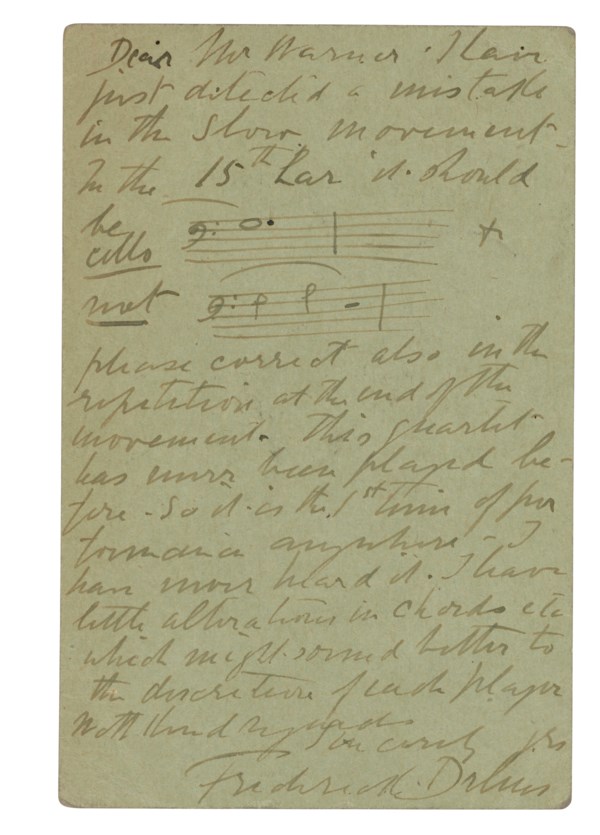 Dear Mr Warner. I have
just detected a mistake
in the Slow movement -
In the 15th bar it should
be
cello
not
please correct also in the
repetition at the end of the
movement. This quartet
has never been played be-
fore - So it is the 1st time of per
formance anywhere - I
have never heard it. I have
little alterations in chords etc
which might sound better to
the discretion of each player
With kind regards
Sincerely yrs
Frederick Delius